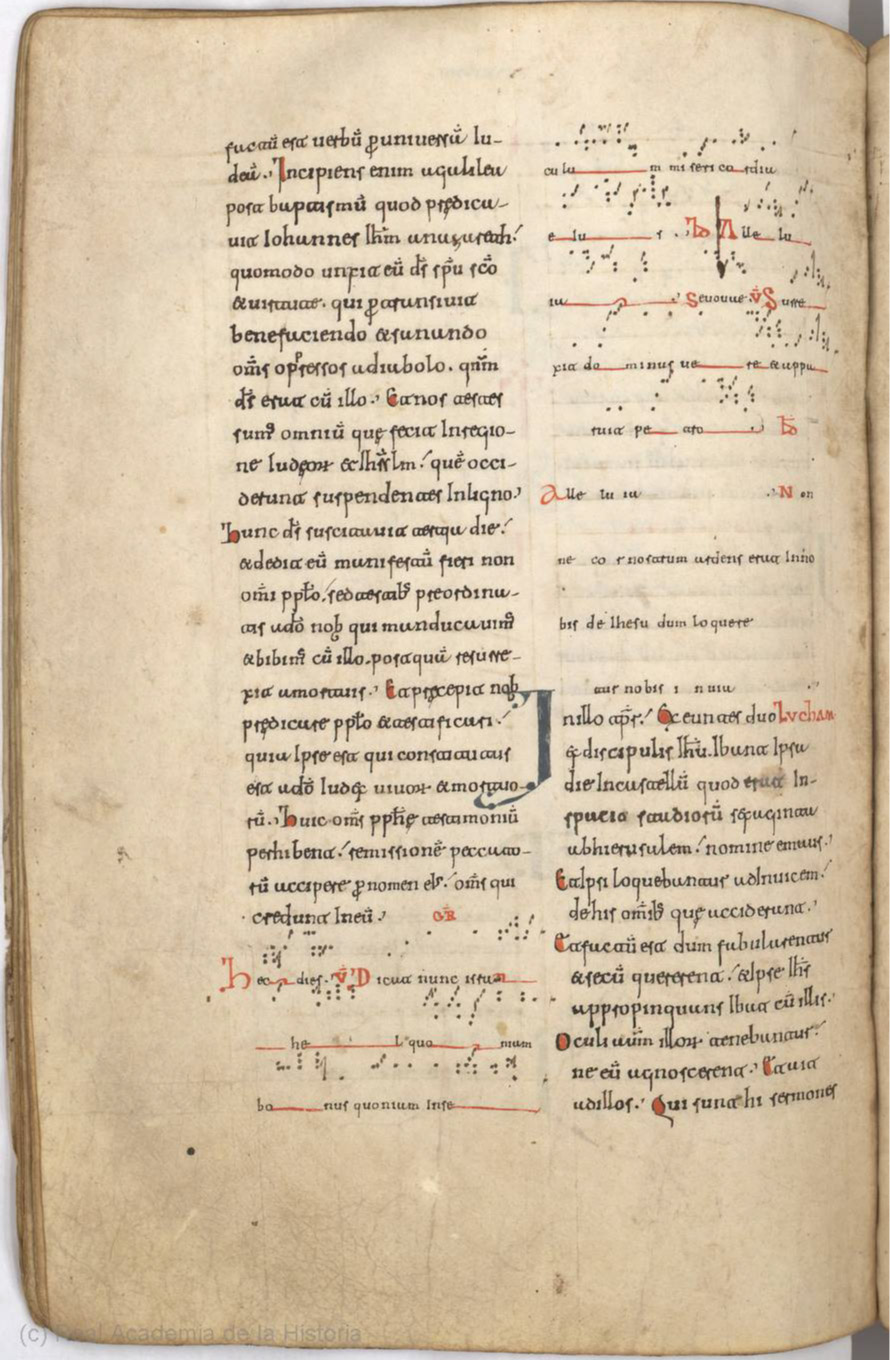 factū est uerbū ꝑ uniuersā iu-
deā. Incipiens enim a galilea
post baptismū quod p̄dica-
uit Iohannes Ih̄m a nazareth.
quomodo unxit eū d̄s sp̄u sc̄o
& uirtute. qui ꝑtransiuit
benefaciendo & sanando
om̄s op̄ressos a diabolo. qm̄
d̄s erat cū illo. Et nos testes
sum᷒ omniū quę fecit In regio-
ne Iudęoꝝ & Ih̄rs̄lm. quē occi-
derunt suspendentes In ligno.
Hunc d̄s suscitauit tertia die.
& dedit eū manifestū fieri non
om̄i pp̄lo. sed testib᷒ preordina-
tis a dō. nob̄ qui manducauim᷒
& bibim᷒ cū illo. postquā resurre-
xit a mortuis. Et pręcepit nob̄
prędicare pp̄lo & testificari.
quia Ipse est qui constitutus
est a dō Iudex uiuoꝝ & mortuo-
rū. Huic om̄s pp̄hę testimoniū
perhibent. remissionē peccato-
rū accipere ꝑ nomen ei᷒. om̄s qui
credunt In eū. GR̄
Hec dies. V̄ Dicat nunc isra
hel quo niam
bo nus quoniam Inse
cu lu m mi seri co rdia
e iu s. P̄ Alle lu
ia Seuouae. V̄ Surre
xit do minus ue re & appa
ruit pe tro P̄
Alle lu ia Non
ne co r nostrum ardens erat In no
bis de Ihesu dum lo quere
tur nobis i n uia
LVCHAM
In illo tp̄r. Exeuntes duo
ex discipulis Ih̄u. Ibant Ipsa
die In castellū quod erat In
spacio stadiorū sexaginta
ab hierusalem. nomine emaus.
Et Ipsi loquebantur ad Inuicem.
de his om̄ib᷒ quę acciderunt.
Et factū est dum fabularentur
& secū quererent. & Ipse Ih̄s
appropinquans Ibat cū illis.
Oculi aūm illoꝝ tenebantur.
ne eū agnoscerent. Et ait
ad illos. Qui sunt hi sermones
(c) Real Academia de la Historia